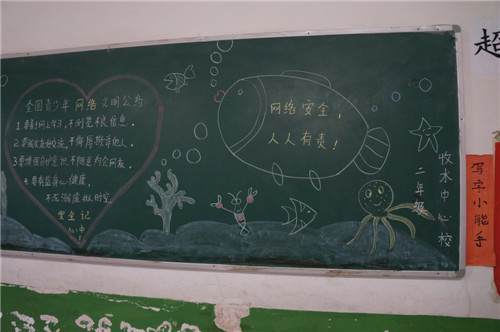 全国青少年网络文明公约
1.要善于网上学习,不浏览不良信息.
2.要诚实友好交流,不侮辱欺诈他人.
3.要增强自护意识,不随意约会网友.
4.要有益身心健康,
不沉溺虚拟时空.
安全记
心中
网络安全,
人人有责!
牧水中心校
二年级
超
写字小能手